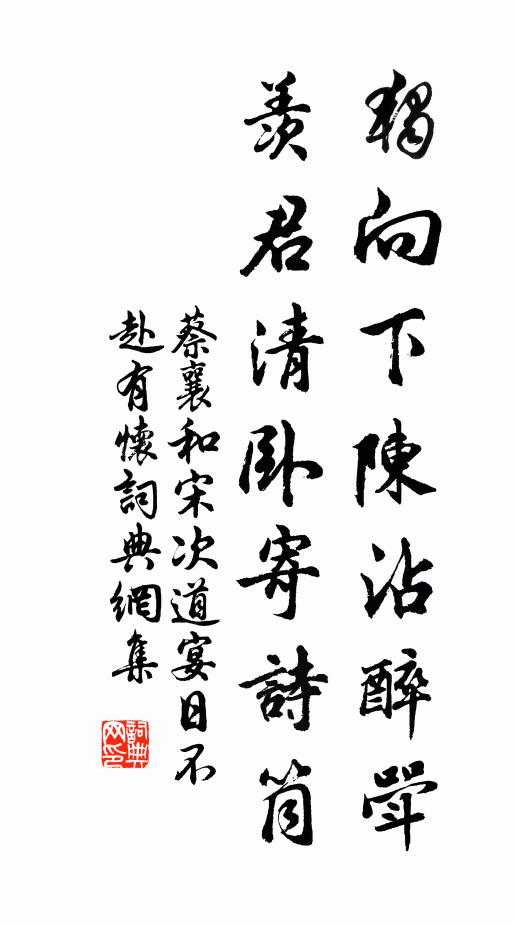 獨向下陳沾醉斝
羨君清臥寄詩筒
蔡襄和宋次道宴日不
赴有懷詞典網集
詞典
网印